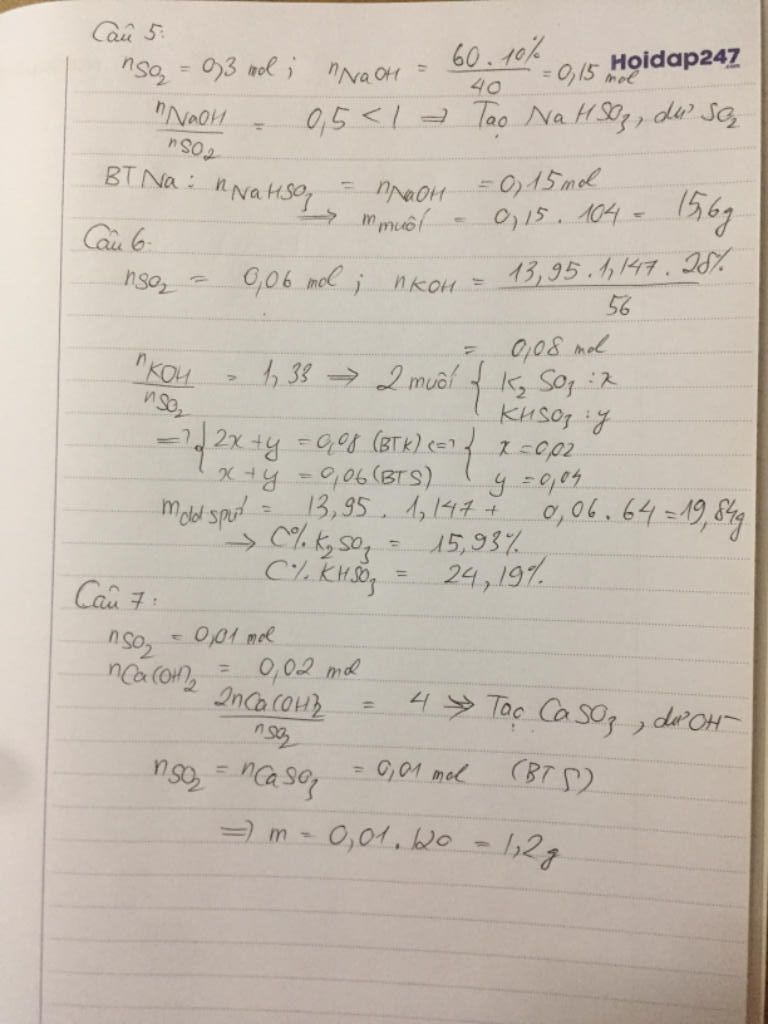 Câu 5:
nSO2 = 0,3 mol ; nNaOH = 60.10% / 40 = 0,15 mol
Hoidap247.com
nNaOH / nSO2 = 0,5 < 1 => Tạo NaHSO3, dư SO2
BTNa: nNaHSO3 = nNaOH = 0,15 mol
=> mmuối = 0,15 . 104 = 15,6g
Câu 6:
nSO2 = 0,06 mol ; nKOH = 13,95.1,147.28% / 56
= 0,08 mol
nKOH / nSO2 = 1,33 => 2 muối { K2SO3 : x
KHSO3 : y
=> { 2x + y = 0,08 (BTK) <=> { x = 0,02
x + y = 0,06 (BTS) y = 0,04
mdd spứ = 13,95 . 1,147 + 0,06 . 64 = 19,84g
-> C% K2SO3 = 15,93%
C% KHSO3 = 24,19%
Câu 7:
nSO2 = 0,01 mol
nCa(OH)2 = 0,02 mol
2nCa(OH)2 / nSO2 = 4 => Tạo CaSO3, dư OH-
nSO2 = nCaSO3 = 0,01 mol (BTS)
=> m = 0,01.120 = 1,2g